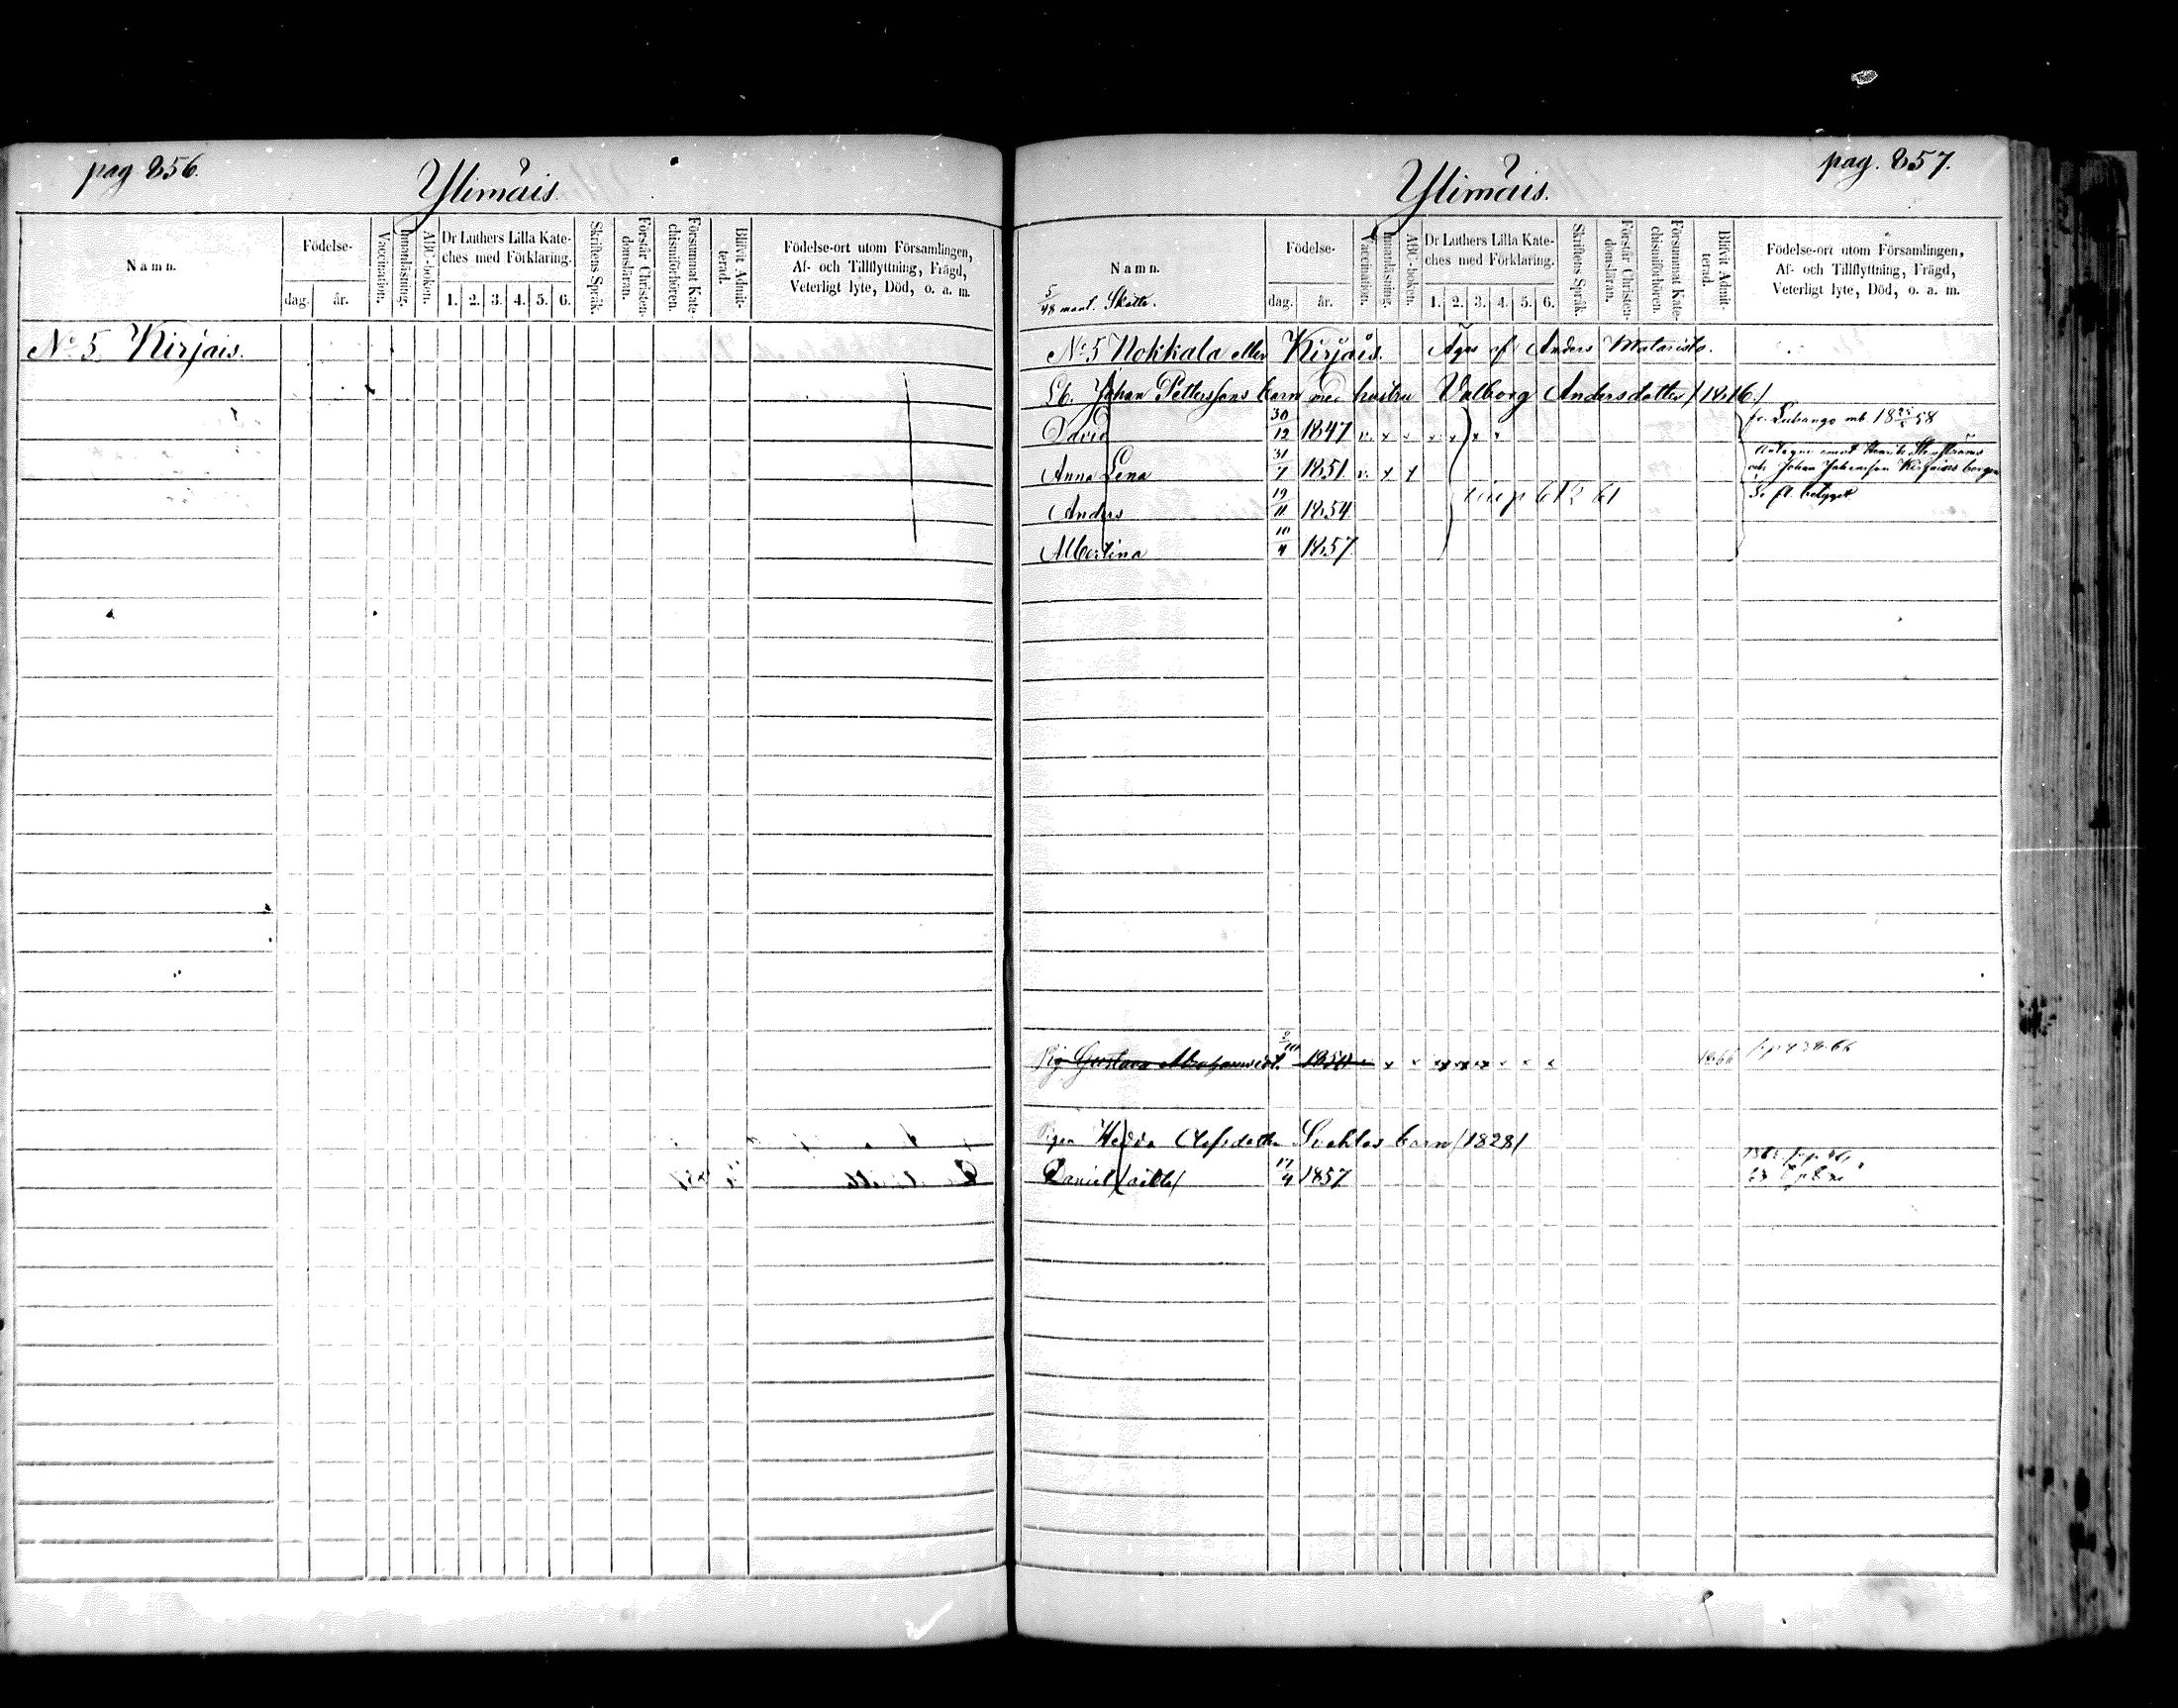 pag 256.
Ylimäis.
Namn.
Födelse-
dag.
år.
Vaccination.
Innanläsning.
ABC-boken.
Dr Luthers Lilla Kate-
ches med Förklaring.
1. 2. 3. 4. 5. 6.
Skriftens Språk.
Förstår Christen-
domsläran.
Försummat Kate-
chismiförhören.
Blifvit Admit-
terad.
Födelse-ort utom Församlingen,
Af- och Tillflyttning, Frägd,
Veterligt lyte, Död, o. a. m.
No 5. Kirjais.
pag. 257.
Ylimäis.
Namn.
5/48 mant. Skatte.
Födelse-
dag.
år.
Vaccination.
Innanläsning.
ABC-boken.
Dr Luthers Lilla Kate-
ches med Förklaring.
1. 2. 3. 4. 5. 6.
Skriftens Språk.
Förstår Christen-
domsläran.
Försummat Kate-
chismiförhören.
Blifvit Admit-
terad.
Födelse-ort utom Församlingen,
Af- och Tillflyttning, Frägd,
Veterligt lyte, Död, o. a. m.
No 5 Nokkala eller Kirjais. Äges af Anders Mataristo.
Lb. Johan Pettersfons barn med hustru Valborg Andersdotter /1816/
David 30/12 1847 v. x x x x x x
Anna Lena 31/7 1851 v. x x
och Johan
Anders 19/11 1854
Albertina 10/4 1857
Pig Gustava 1850 x x x x x x x x 1866
Pigan Hedda barn /1828/
Daniel /oäkta/ 17/4 1857